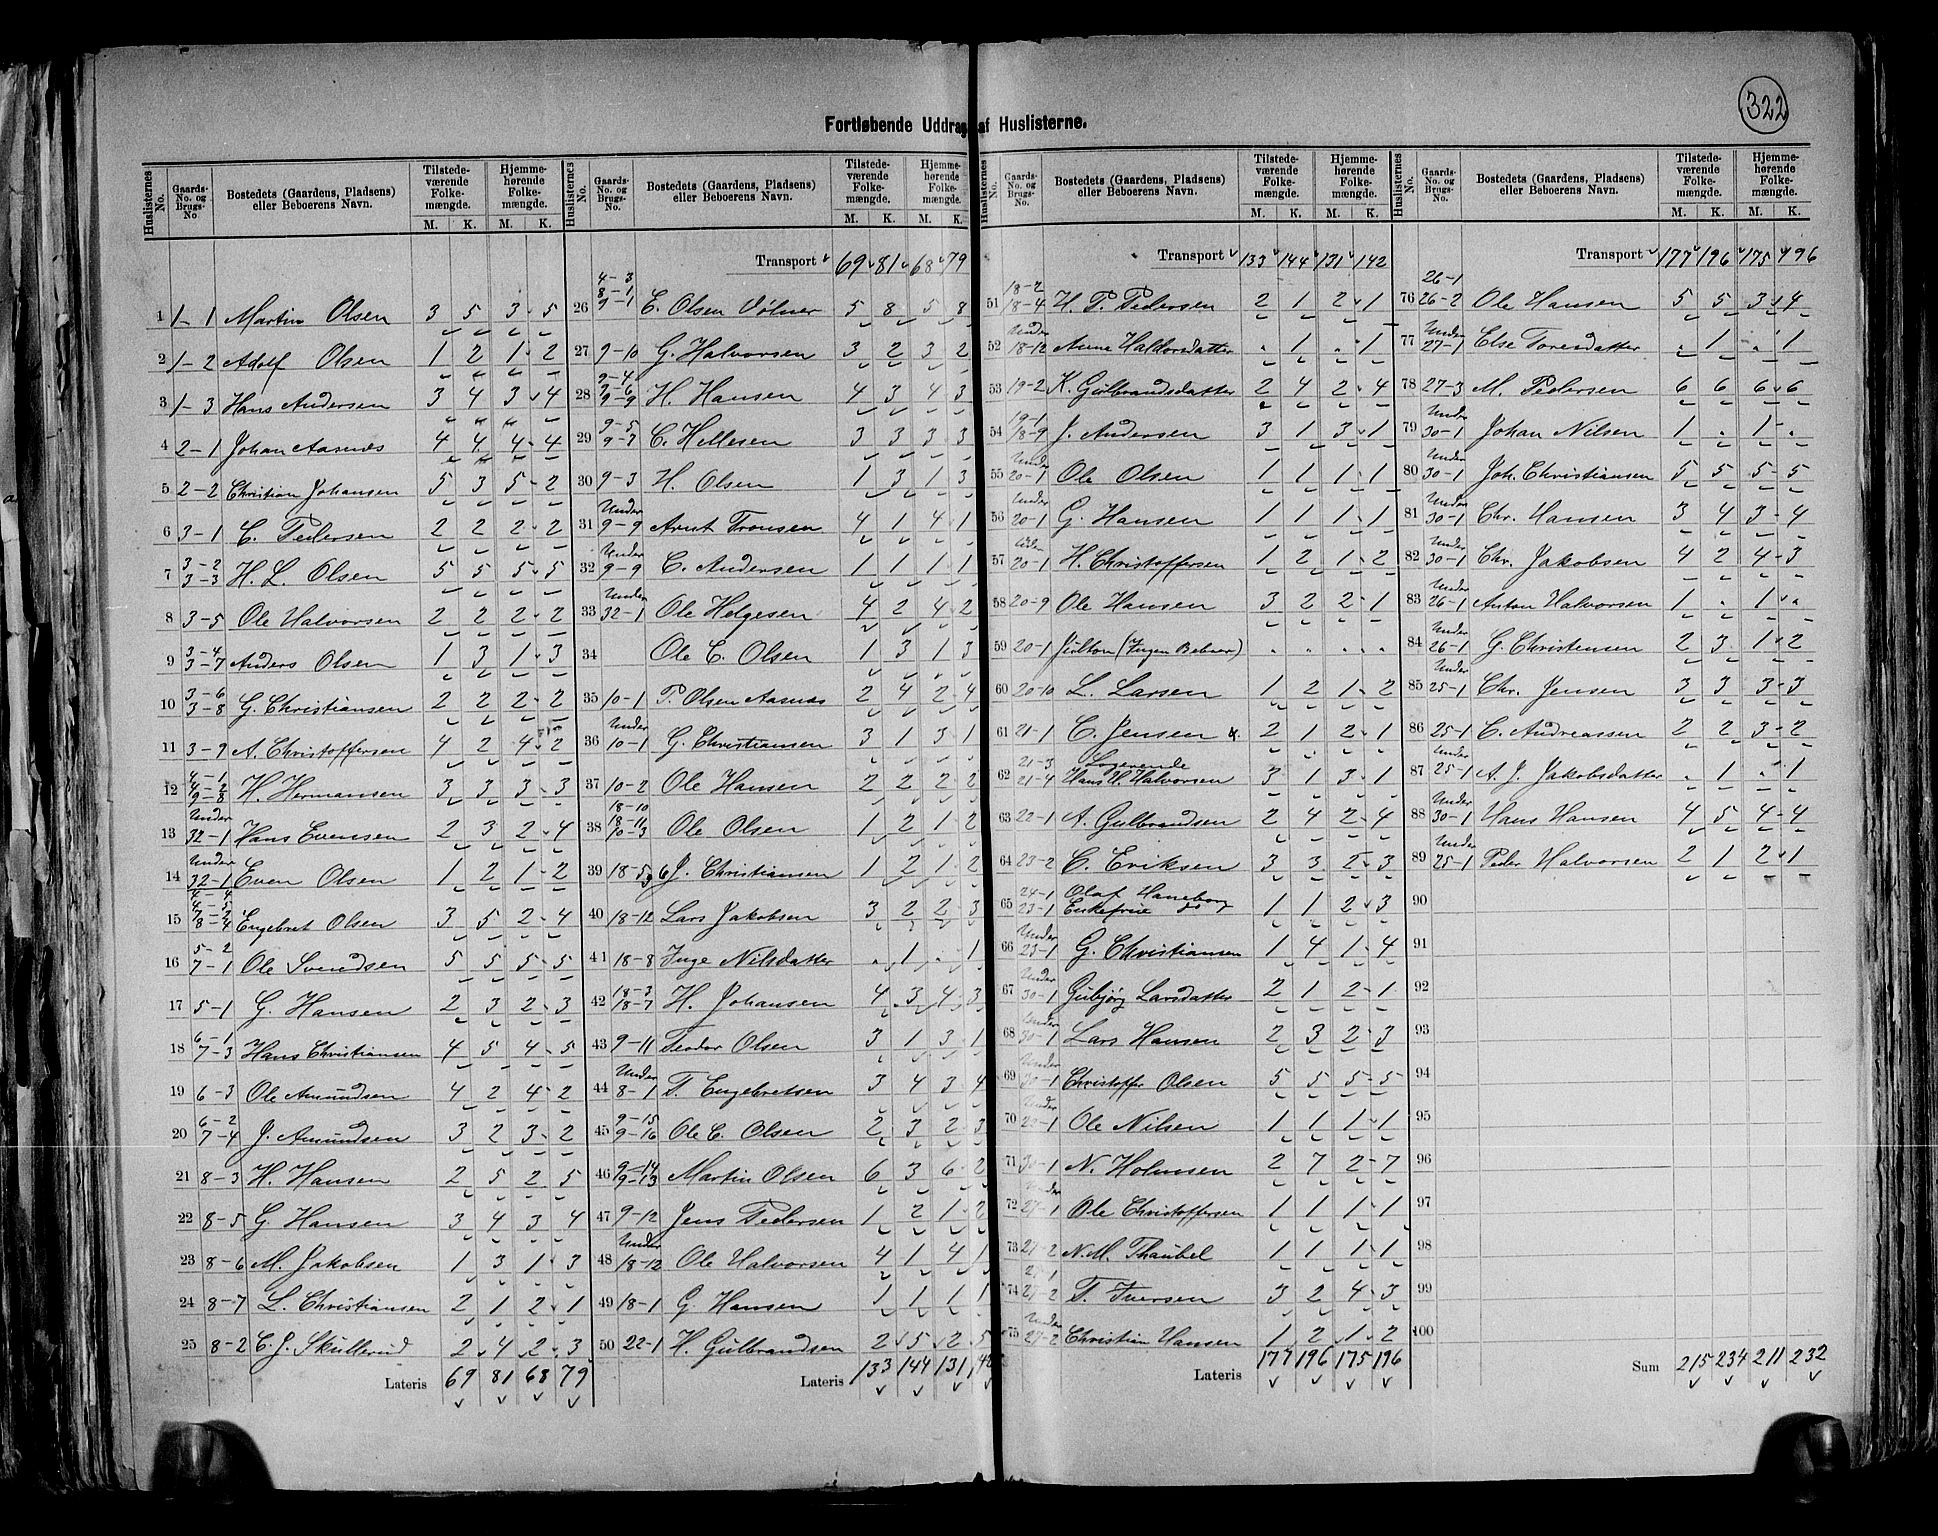 322
Fortløbende Uddrag af Huslisterne.
Huslisternes No. Gaards-No. og Brugs-No Bostedets (Gaardens, Pladsens) eller Beboerens Navn. Tilstedeværende Folkemængde. M. K. Hjemmehørende Folkemængde. M. K.
1 1-1 Martin Olsen 3 5 3 5
2 1-2 Adolf Olsen 1 2 1 2
3 1-3 Hans Andersen 3 4 3 4
4 2-1 Johan Aasnæs 4 4 4 4
5 2-2 Christian Johansen 5 3 5 2
6 3-1 C. Pedersen 2 2 2 2
7 3-2 3-3 H. L. Olsen 5 5 5 5
8 3-5 Ole Halvorsen 2 2 2 2
9 3-4 3-7 Anders Olsen 1 3 1 3
10 3-6 3-8 G. Christiansen 2 2 2 2
11 3-9 A. Christoffersen 4 2 4 2
12 4-1 4-2 9-8 H. Hermansen 3 3 3 3
13 Under 32-1 Hans Evensen 2 3 2 4
14 Under 32-1 Even Olsen 1 2 1 2
15 4-4 4-5 7-2 8-4 Engebret Olsen 3 5 2 4
16 5-2 7-1 Ole Svendsen 5 5 5 5
17 5-1 G. Hansen 2 3 2 3
18 6-1 7-3 Hans Christiansen 4 5 4 5
19 6-3 Ole Amundsen 4 2 4 2
20 6-2 7-4 J. Amundsen 3 2 3 2
21 8-3 H. Hansen 2 5 2 5
22 8-5 G. Hansen 3 4 3 4
23 8-6 M. Jakobsen 1 3 1 3
24 8-7 L. Christiansen 2 1 2 1
25 8-2 C. J. Skullerud 2 4 2 3
Lateris 69 81 68 79
Huslisternes No. Gaards-No. og Brugs-No. Bostedets (Gaardens, Pladsens) eller Beboerens Navn. Tilstedeværende Folkemængde. M. K. Hjemmehørende Folkemængde. M. K.
Transport 69 81 68 79
26 4-3 8-1 9-1 E. Olsen Vølner 5 8 5 8
27 9-10 G. Halvorsen 3 2 3 2
28 9-4 9-6 9-9 H. Hansen 4 3 4 3
29 9-5 9-7 C. Hellesen 3 3 3 3
30 9-3 H. Olsen 1 3 1 3
31 Under 9-9 Arnt Tronsen 4 1 4 1
32 Under 9-9 C. Andersen 1 1 1 1
33 Under 32-1 Ole Helgesen 4 2 4 2
34 Ole C. Olsen 1 3 1 3
35 10-1 P. Olsen Aasnæs 2 4 2 4
36 Under 10-1 G. Christiansen 3 1 3 1
37 10-2 Ole Hansen 2 2 2 2
38 18-10 18-11 10-3 Ole Olsen 1 2 1 2
39 18-5 6 J. Christiansen 1 2 1 2
40 18-12 Lars Jakobsen 3 2 2 3
41 18-8 Inge Nilsdatter . 1 . 1
42 18-3 18-7 H. Johansen 4 3 4 3
43 9-11 Teodor Olsen 3 1 3 1
44 Under 8-1 T. Engebretsen 3 4 3 4
45 9-15 9-16 Ole C. Olsen 2 3 2 3
46 9-14 9-13 Martin Olsen 6 3 6 2
47 9-12 Jens Pedersen 1 2 1 2
48 Under 18-12 Ole Halvorsen 4 1 4 1
49 18-1 G. Hansen 1 1 1 1
50 22-1 H. Gulbrandsen 2 5 2 5
Lateris 133 144 131 142
Huslisternes No. Gaards-No. og Brugs-No. Bostedets (Gaardens, Pladsens) eller Beboerens Navn. Tilstedeværende Folkemængde. M. K. Hjemmehørende Folkemængde. M. K.
Transport 133 144 131 142
51 18-2 18-4 H. P. Pedersen 2 1 2 1
52 Under 18-12 Anne Haldorsdatter . 1 . 1
53 19-2 K. Gulbrandsdatter 2 4 2 4
54 19-1 18-9 J. Andersen 3 1 3 1
55 Under 20-1 Ole Olsen 1 1 1 1
56 Under 20-1 G. Hansen 1 1 1 1
57 Under 20-1 H. Christoffersen 1 2 1 2
58 20-9 Ole Hansen 3 2 2 1
59 20-1 (Ingen Beboer) . . . .
60 20-10 L. Larsen 1 2 1 2
61 21-1 C. Jensen 2 1 2 1
62 21-3 21-4 Logerende Hans H. Halvorsen 3 1 3 1
63 22-1 A. Gulbrandsen 2 4 2 4
64 23-2 C. Eriksen 3 3 2 3
65 24-1 23-1 Olaf Haneborg Enkefrue do 1 1 2 3
66 Under 23-1 G. Christiansen 1 4 1 4
67 Under 30-1 Gubjörg Larsdatter 2 1 2 1
68 Under 30-1 Lars Hansen 2 3 2 3
69 Under 30-1 Christoffer Olsen 5 5 5 5
70 Under Ole Nilsen 1 1 1 1
71 30-1 N. Holmsen 2 7 2 7
72 Under 27-1 Ole Christoffersen 1 1 1 1
73 27-2 N. M. Thaubel 1 1 1 1
74 27-1 27-2 T. Iversen 3 2 4 3
75 Under 27-2 Christian Hansen 1 2 1 2
Lateris 177 196 175 196
Huslisternes No. Gaards-No. og Brugs-No. Bostedets (Gaardens, Pladsens) eller Beboerens Navn. Tilstedeværende Folkemængde. M. K. Hjemmehørende Folkemængde. M. K.
Transport 177 196 175 196
76 26-1 26-2 Ole Hansen 5 5 3 4
77 Under 27-1 Else Toresdatter . 1 . 1
78 27-3 M. Pedersen 6 6 6 6
79 Under 30-1 Johan Nilsen 1 . 1 .
80 Under 30-1 Joh. Christiansen 5 5 5 5
81 Under 30-1 Chr. Hansen 3 4 3 4
82 Under 30-1 Chr. Jakobsen 4 2 4 3
83 Under 26-1 Anton Halvorsen 1 . 1 .
84 Under 26-1 G. Christensen 2 3 1 2
85 Under 25-1 Chr. Jensen 3 3 3 3
86 25-1 C. Andreassen 2 2 3 2
87 Under 25-1 A. J. Jakobsdatter . 1 . 1
88 Under 30-1 Hans Hansen 4 5 4 4
89 Under 25-1 Peder Halvorsen 2 1 2 1
90
91
92
93
94
95
96
97
98
99
100
Sum 215 234 211 232